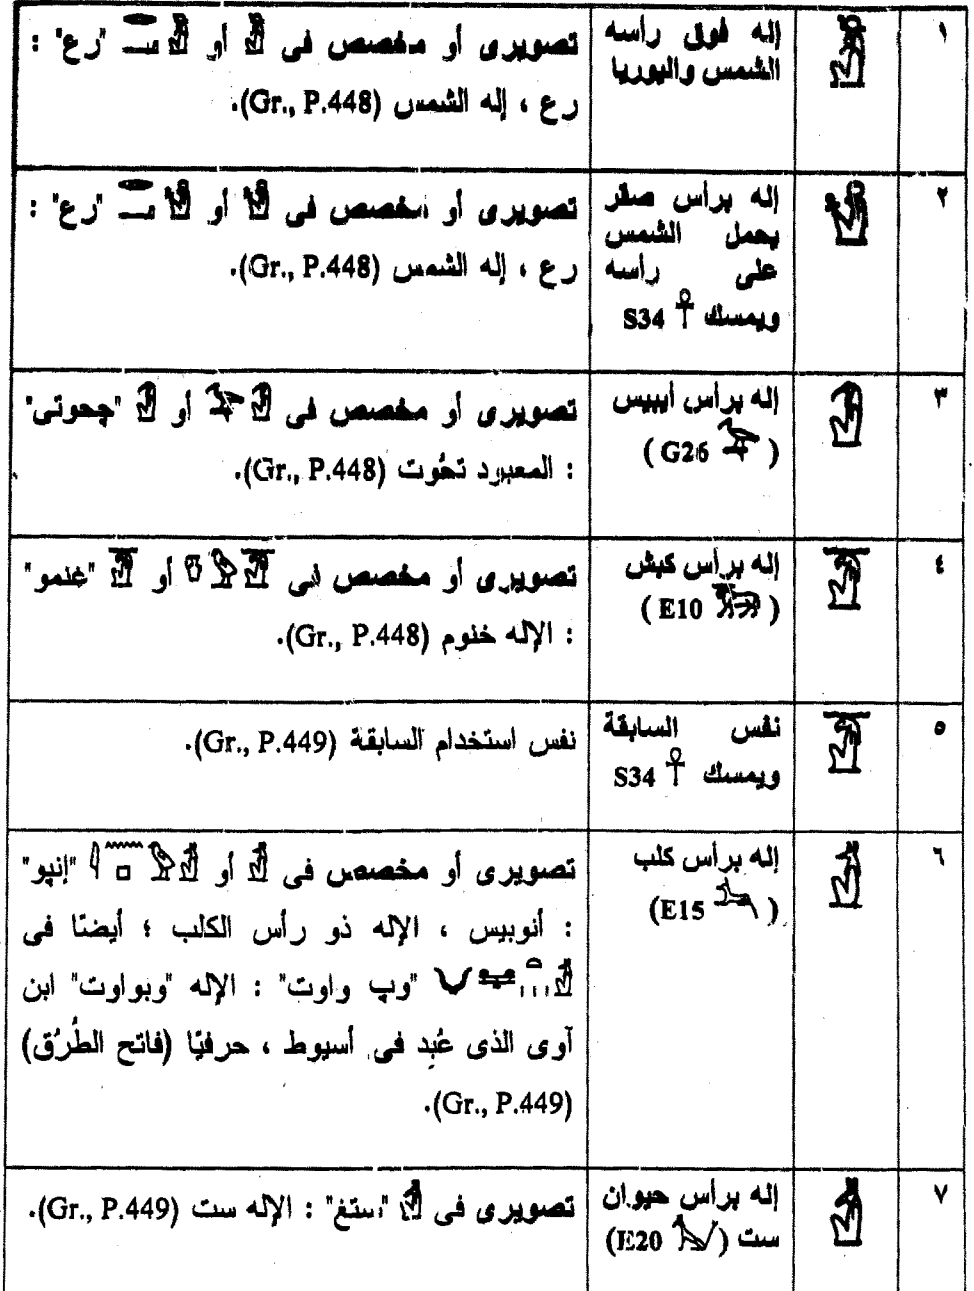 ١
إله فوق رأسه
الشمس واليوريا
تصويرى أو مخصص فى أو "رع" :
رع ، إله الشمس (Gr., P.448).
٢
إله برأس صقر
يحمل الشمس
على رأسه
ويمسك S34
تصويرى أو مخصص فى أو "رع" :
رع ، إله الشمس (Gr., P.448).
٣
إله برأس أيبيس
( G26 )
تصويرى أو مخصص فى أو "جحوتى"
: المعبود تحُوت (Gr., P.448).
٤
إله برأس كبش
( E10 )
تصويرى أو مخصص فى أو "غنمو"
: الإله خنوم (Gr., P.448).
٥
نفس السابقة
ويمسك S34
نفس استخدام السابقة (Gr., P.449).
٦
إله برأس كلب
( E15)
تصويرى أو مخصص فى أو "إنپو"
: أنوبيس ، الإله ذو رأس الكلب ؛ أيضًا فى
"وپ واوت" : الإله "وبواوت" ابن
آوى الذى عُبد فى أسيوط ، حرفيًا (فاتح الطُرُق)
(Gr., P.449).
٧
إله برأس حيوان
ست ( E20)
تصويرى فى "ستغ" : الإله ست (Gr., P.449).